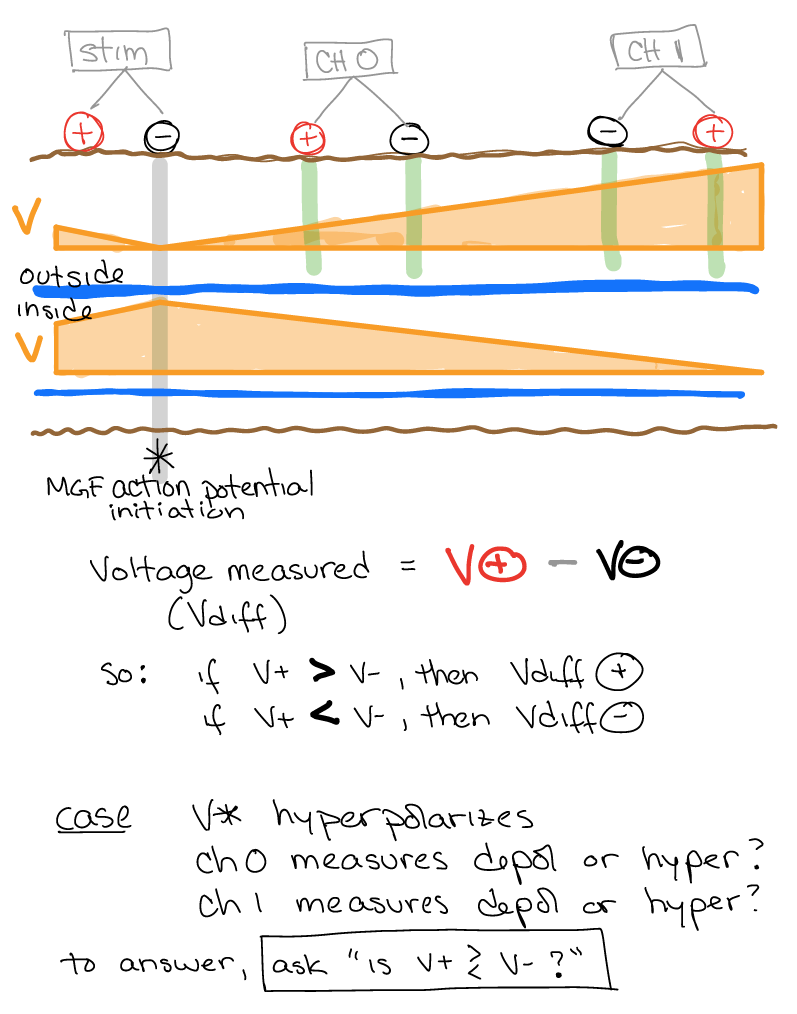 stim CH 0 CH 1
+ − + − − +
V
outside
inside
V
*
MGF action potential
initiation
Voltage measured = V⊕ − V⊖
(Vdiff)
so: if V+ > V- , then Vdiff ⊕
if V+ < V- , then Vdiff ⊖
case V* hyperpolarizes
ch 0 measures depol or hyper?
ch 1 measures depol or hyper?
to answer, ask "is V+ ≷ V- ?"